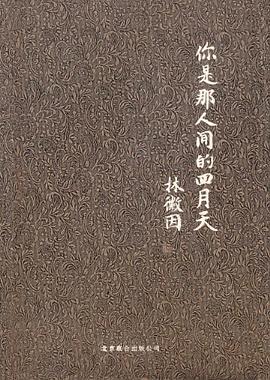 你是那人间的四月天
林徽因
北京联合出版公司